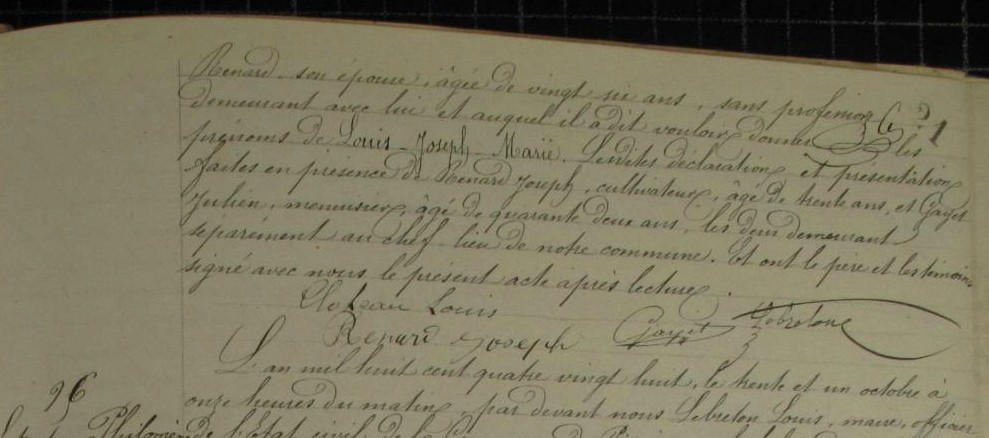 Renard son épouse, âgée de vingt six ans, sans profession
demeurant avec lui et auquel il a dit vouloir donner les
prénoms de Louis Joseph Marie. Lesdites déclaration et présentation
faites en présence de Renard Joseph, cultivateur, âgé de trente ans, et Gayet
Julien, menuisier, âgé de quarante deux ans, les deux demeurant
séparément au chef-lieu de notre commune. Et ont le père et les témoins
signé avec nous le présent acte après lecture.
Louis
Renard Joseph Gayet Lebreton
L'an mil huit cent quatre vingt huit, le trente et un octobre à
96
onze heures du matin, par devant nous Lebreton Louis, maire, officier
Philomène de l'Etat civil de la